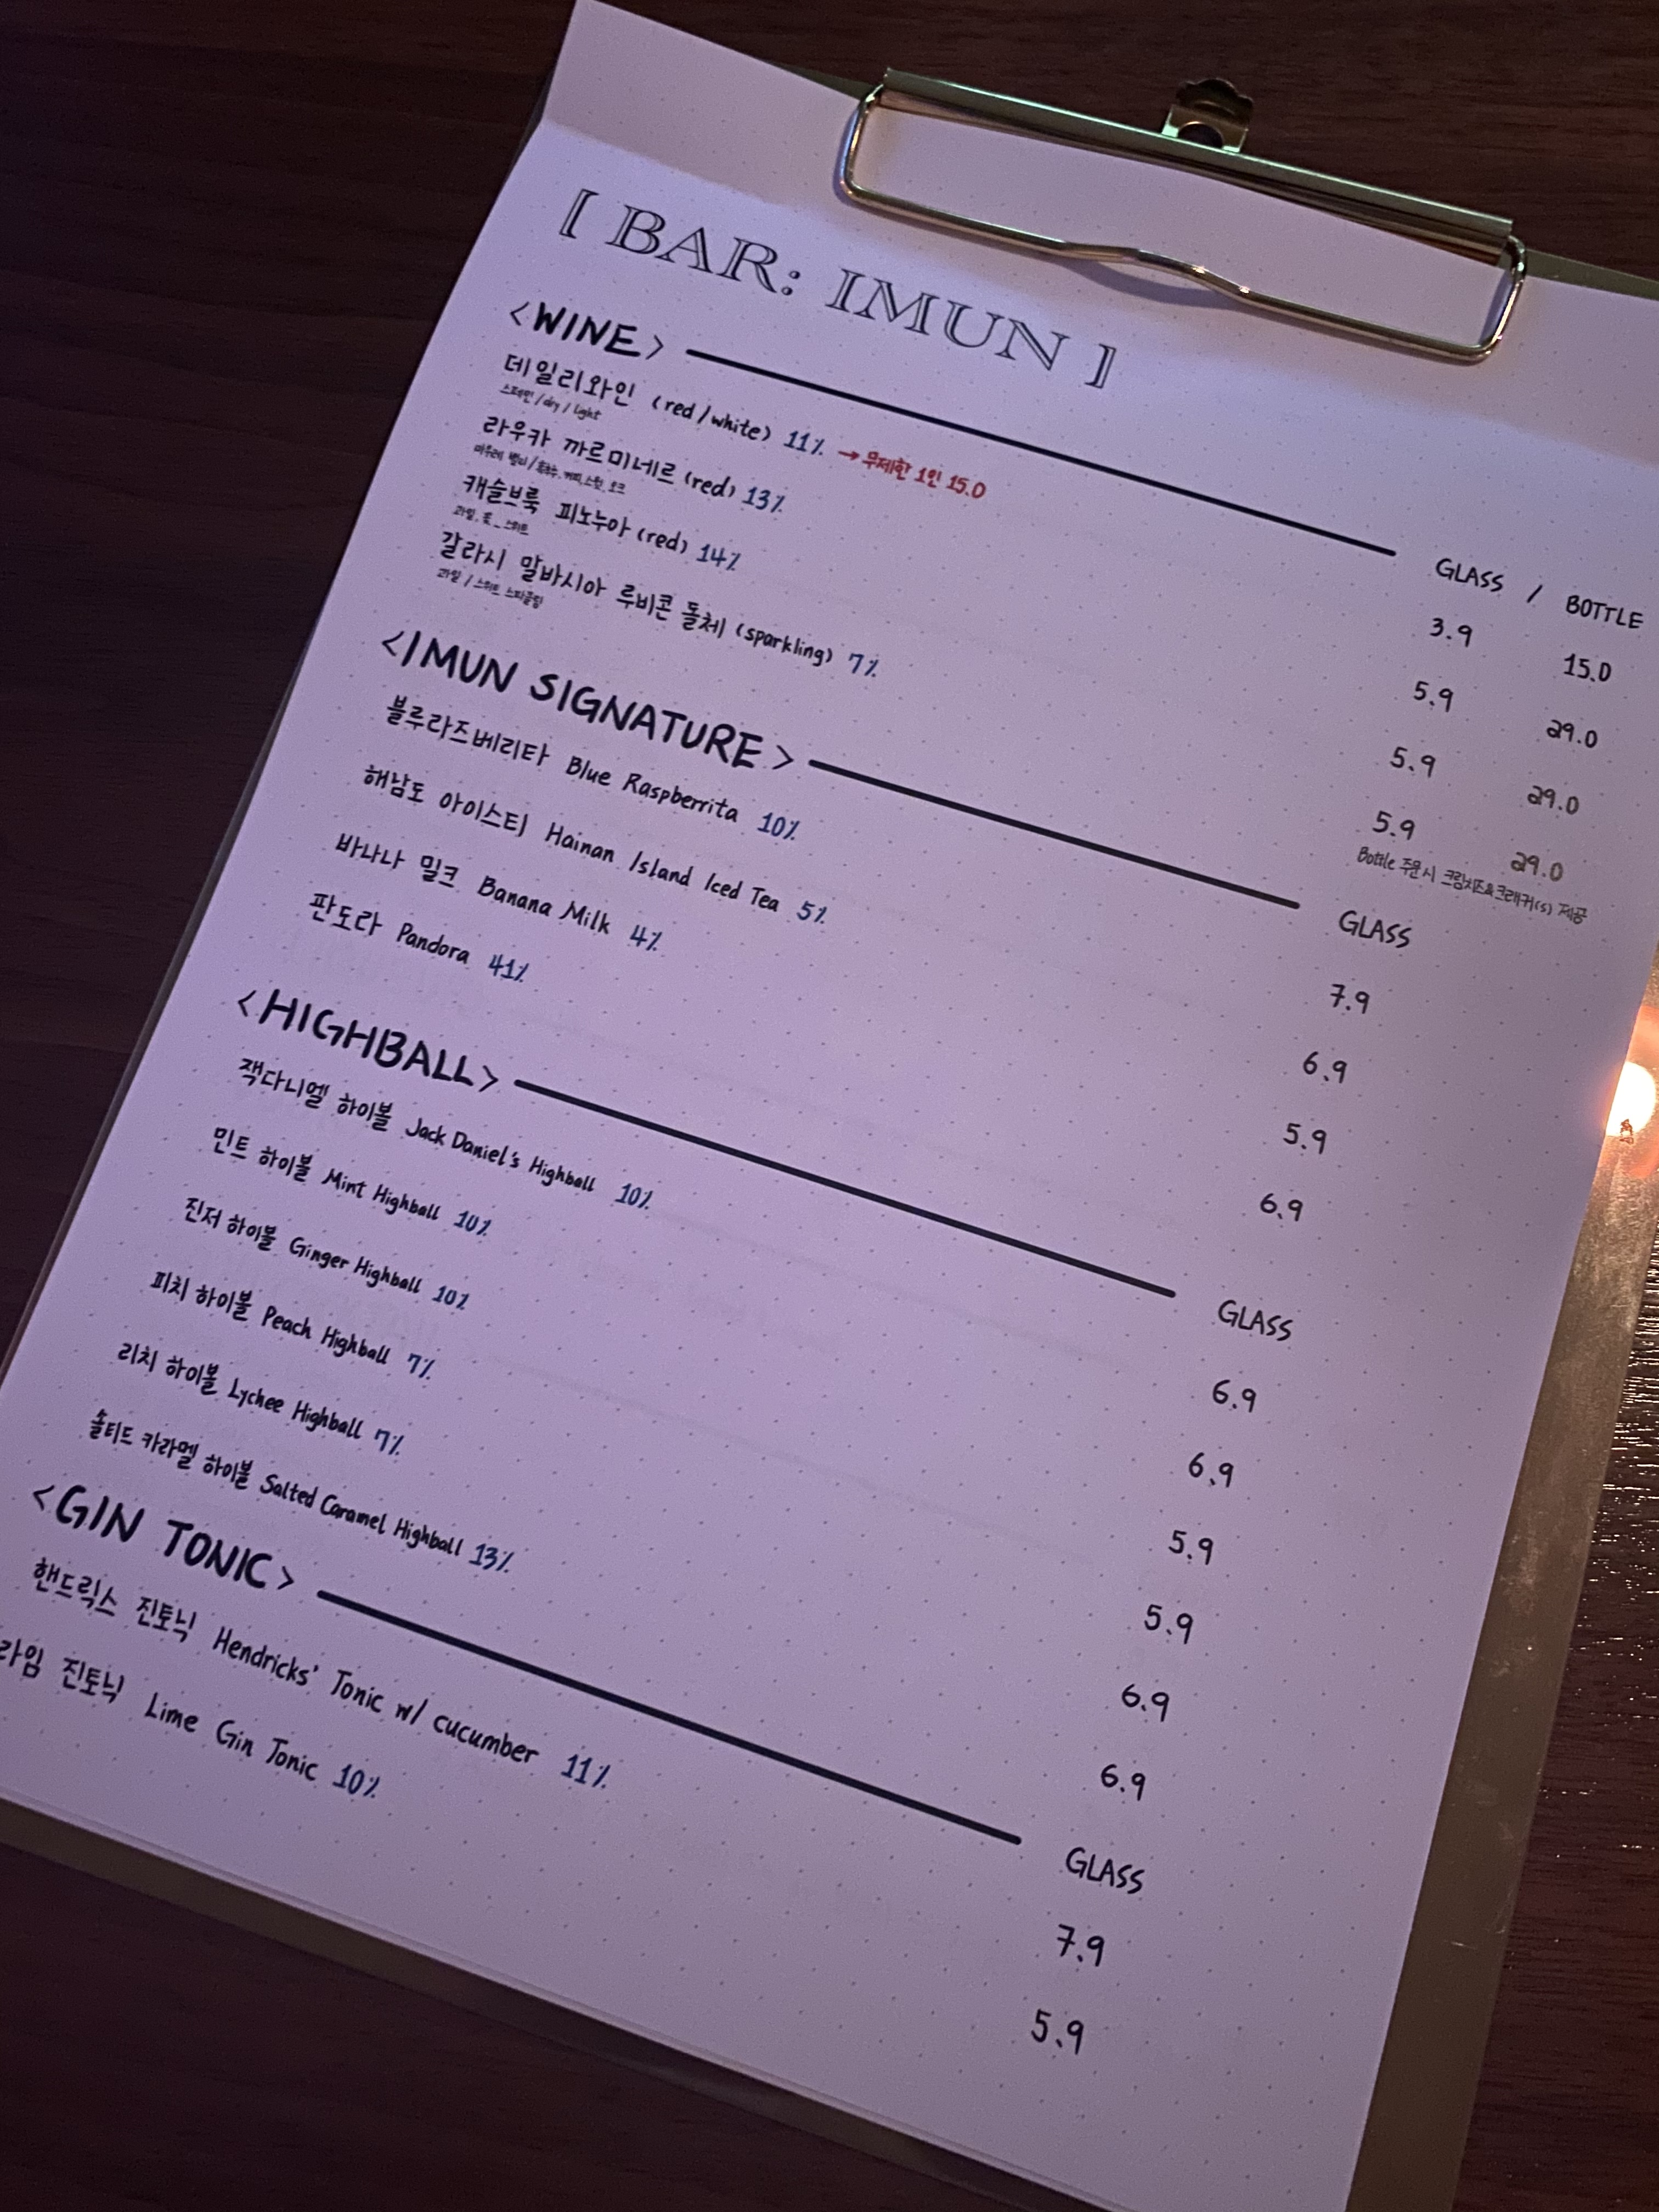 [ BAR: IMUN ]
<WINE> GLASS / BOTTLE
데일리와인 (red/white) 11% → 무제한 1인 15.0 3.9 15.0
스페인 / dry / light
라우카 까르미네르 (red) 13% 5.9 29.0
마우레 밸리 / 커피, 오크
캐슬브룩 피노누아 (red) 14% 5.9 29.0
과일, 스위트
갈라시 말바시아 루비콘 돌체 (sparkling) 7% 5.9 29.0
과일 / 스위트 스파클링
Bottle 주문시 크림치즈&크래커(s) 제공
<IMUN SIGNATURE> GLASS
블루라즈베리타 Blue Raspberrita 10% 7.9
해남도 아이스티 Hainan Island Iced Tea 5% 6.9
바나나 밀크 Banana Milk 4% 5.9
판도라 Pandora 41% 6.9
<HIGHBALL> GLASS
잭다니엘 하이볼 Jack Daniel's Highball 10% 6.9
민트 하이볼 Mint Highball 10% 6.9
진저 하이볼 Ginger Highball 10% 5.9
피치 하이볼 Peach Highball 7% 5.9
리치 하이볼 Lychee Highball 7% 6.9
솔티드 카라멜 하이볼 Salted Caramel Highball 13% 6.9
<GIN TONIC> GLASS
핸드릭스 진토닉 Hendricks' Tonic w/ cucumber 11% 7.9
라임 진토닉 Lime Gin Tonic 10% 5.9